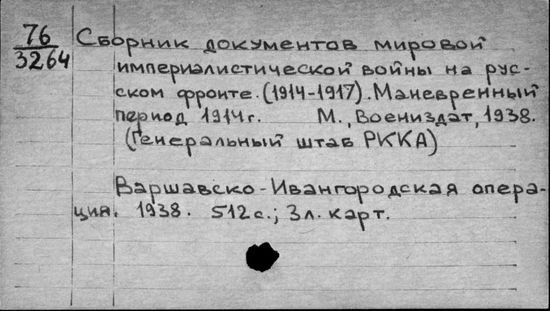 76
3264
Сборник документов мировой
империалистической войны на рус-
ском фронте. (1914-1917). Маневренный
период 1914 г. М., Воениздат, 1938.
(Генеральный штаб РККА)
Варшавско-Ивангородская опера-
ция. 1938. 512 с.; 3 л. карт.